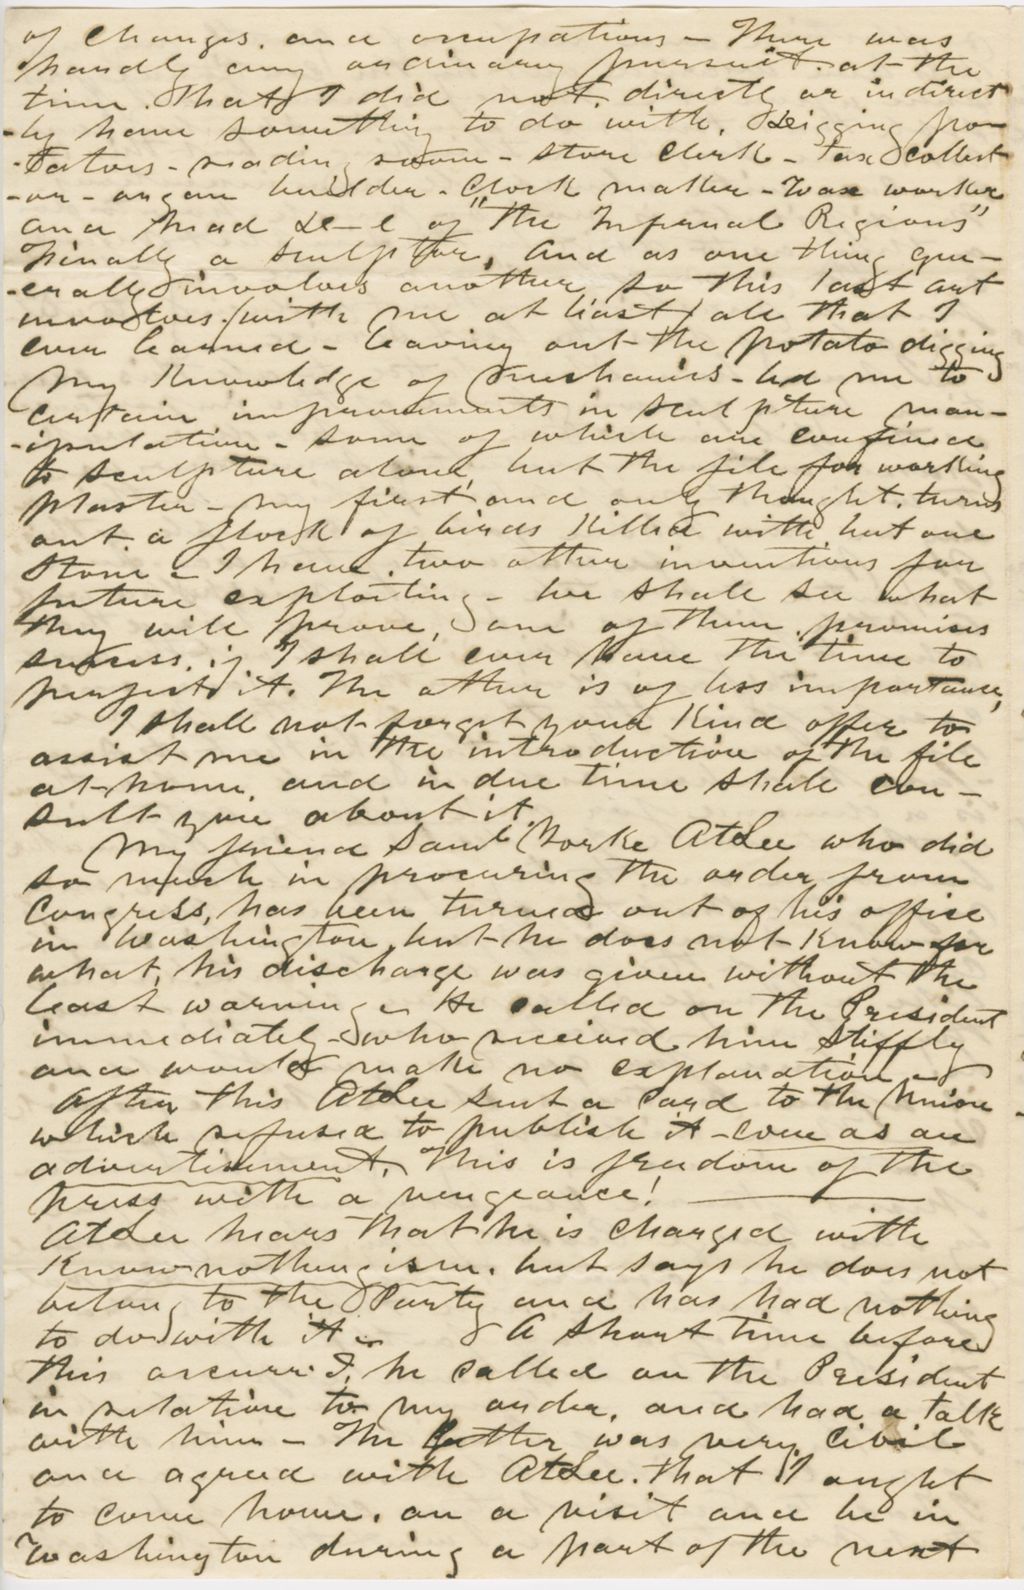 of changes, and occupations - There was
hardly any ordinary pursuit at the
time that I did not, directly or indirect
-ly have something to do with. Digging po-
-tatoes - reading room - store clerk - tax collect
-or - organ builder - Clock maker - wax worker
and head De-l of "The Infernal Regions"
Finally a sculptor, and as one thing gen-
-erally involves another, so this last art
involves (with me at least) all that I
ever learned - leaving out the potato digging
My knowledge of mechanics - led me to
certain improvements in sculpture man-
-ipulation - some of which are confined
to sculpture alone, but the file for working
plaster - my first and only thought, turns
out a flock of birds killed with but one
stone - I have two other inventions for
future exploiting - we shall see what
they will prove, one of them promises
success, if I shall ever have the time to
perfect it. The other is of less importance,
I shall not forget your kind offer to
assist me in the introduction of the file
at home, and in due time shall con-
sult you about it.
My friend Saml Yorke AtLee who did
so much in procuring the order from
Congress, has been turned out of his office
in Washington, but he does not know for
what, his discharge was given without the
least warning. He called on the President
immediately - who received him stiffly
and would make no explanation -
After this AtLee sent a Card to the Union
which refused to publish it - even as an
advertisement. This is freedom of the
press with a vengeance!
AtLee hears that he is charged with
Knownothingism, but says he does not
belong to the Party and has had nothing
to do with it - A short time before
this occurred, he called on the President
in relation to my order, and had a talk
with him - The latter was very civil
and agreed with AtLee that I ought
to come home, on a visit and be in
Washington during a part of the next